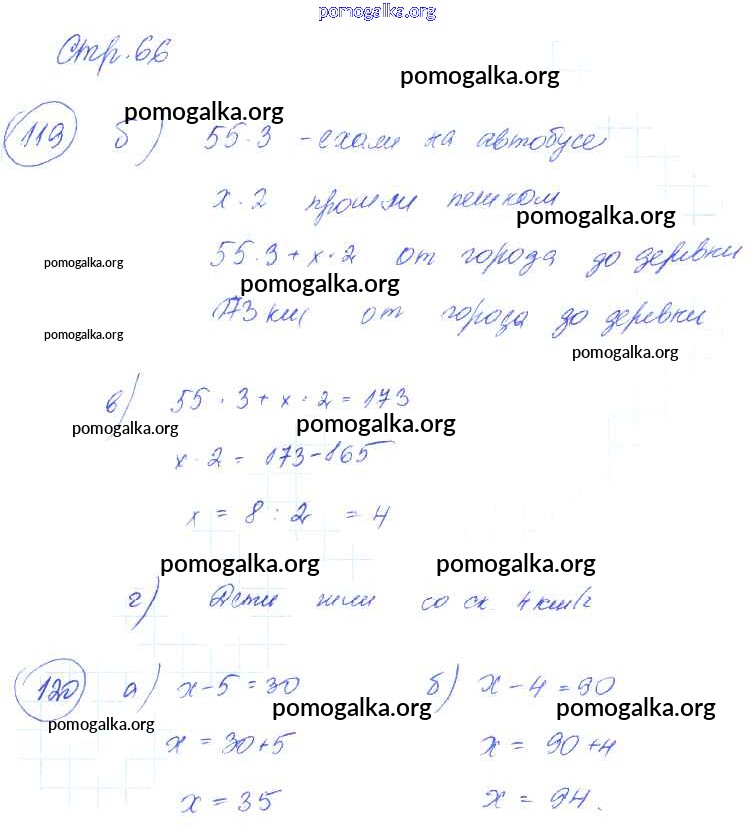 pomogalka.org
Стр. 66
pomogalka.org
pomogalka.org
119 б) 55·3 - ехали на автобусе
х·2 прошли пешком
pomogalka.org
55·3+х·2 от города до деревни
pomogalka.org
pomogalka.org
173 км от города до деревни
pomogalka.org
pomogalka.org
в) 55·3+х·2=173
pomogalka.org
pomogalka.org
х·2=173-165
х=8:2=4
pomogalka.org
pomogalka.org
г) Дети шли со ск. 4 км/г
120 а) х-5=30 б) х-4=90
pomogalka.org
pomogalka.org
pomogalka.org
х=30+5 х=90+4
х=35 х=94.